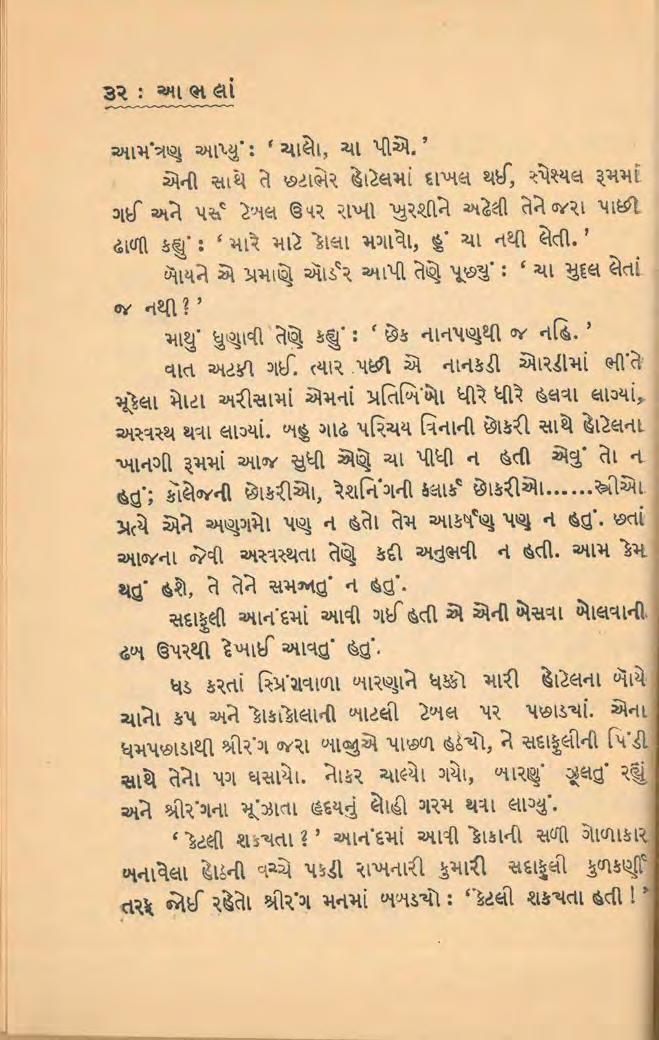 ૩૨ : આ ભ લાં
આમંત્રણ આપ્યું : ‘ ચાલો, ચા પીએ. ’
એની સાથે તે છટાભેર હોટેલમાં દાખલ થઈ, સ્પેશ્યલ રૂમમાં
ગઈ અને પર્સ ટેબલ ઉપર રાખી ખુરશીને અઢેલી તેને જરા પાછી
ઢાળી કહ્યું : ‘ મારે માટે કોલા મગાવો, હું ચા નથી લેતી. ’
બૉયને એ પ્રમાણે ઑર્ડર આપી તેણે પૂછ્યું : ‘ ચા મુદ્દલ લેતાં
જ નથી ? ’
માથું ધુણાવી તેણે કહ્યું : ‘ છેક નાનપણથી જ નહિ. ’
વાત અટકી ગઈ. ત્યાર પછી એ નાનકડી ઓરડીમાં ભીંતે
મૂકેલા મોટા અરીસામાં એમનાં પ્રતિબિંબો ધીરે ધીરે હલવા લાગ્યાં,
અસ્વસ્થ થવા લાગ્યાં. બહુ ગાઢ પરિચય વિનાની છોકરી સાથે હોટેલના
ખાનગી રૂમમાં આજ સુધી એણે ચા પીધી ન હતી એવું તો ન
હતું; કૉલેજની છોકરીઓ, રેશનિંગની કલાર્ક છોકરીઓ......સ્ત્રીઓ
પ્રત્યે એને અણગમો પણ ન હતો તેમ આકર્ષણ પણ ન હતું. છતાં
આજના જેવી અસ્વસ્થતા તેણે કદી અનુભવી ન હતી. આમ કેમ
થતું હશે, તે તેને સમજાતું ન હતું.
સદાફુલી આનંદમાં આવી ગઈ હતી એ એની બેસવા બોલવાની
ઢબ ઉપરથી દેખાઈ આવતું હતું.
ધડ કરતાં સ્પ્રિંગવાળા બારણાને ધક્કો મારી હોટેલના બૉયે
ચાનો કપ અને કોકાકોલાની બાટલી ટેબલ પર પછાડયાં. એના
ધમપછાડાથી શ્રીરંગ જરા બાજુએ પાછળ હઠયો, ને સદાફુલીની પિંડી
સાથે તેનો પગ ઘસાયો. નોકર ચાલ્યો ગયો, બારણું ઝૂલતું રહ્યું
અને શ્રીરંગના મૂંઝાતા હૃદયનું લોહી ગરમ થવા લાગ્યું.
‘ કેટલી શકયતા ? ’ આનંદમાં આવી કોકાની સળી ગોળાકાર
બનાવેલા હોઠની વચ્ચે પકડી રાખનારી કુમારી સદાફુલી કુળકર્ણી
તરફ જોઈ રહેતો શ્રીરંગ મનમાં બબડયો : ‘ કેટલી શકયતા હતી ! ’